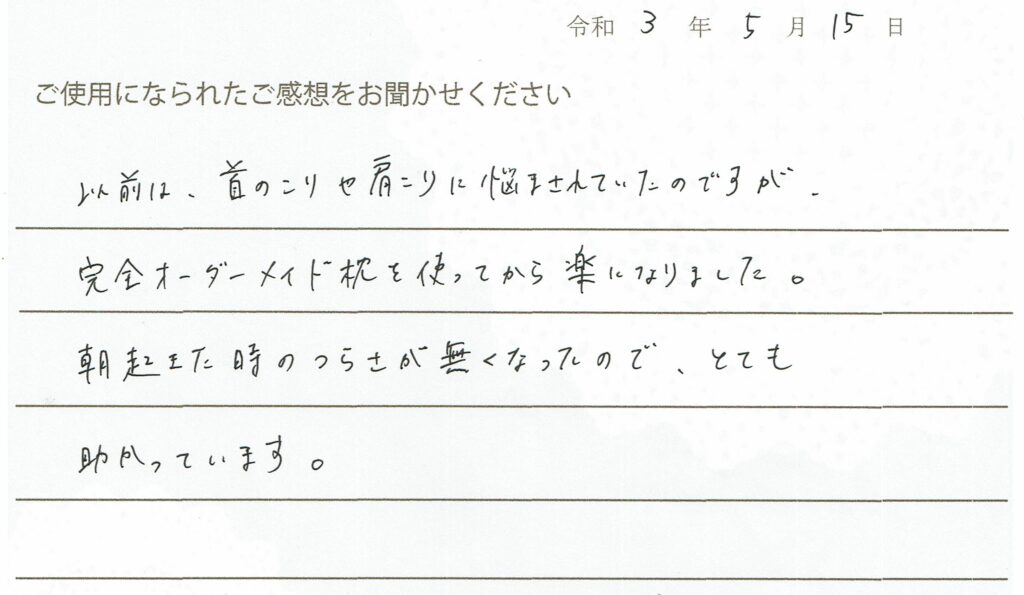 令和 3 年 5 月 15 日
ご使用になられたご感想をお聞かせください
以前は、首のこりや肩こりに悩まされていたのですが、
完全オーダーメイド枕を使ってから楽になりました。
朝起きた時のつらさが無くなったので、とても
助かっています。